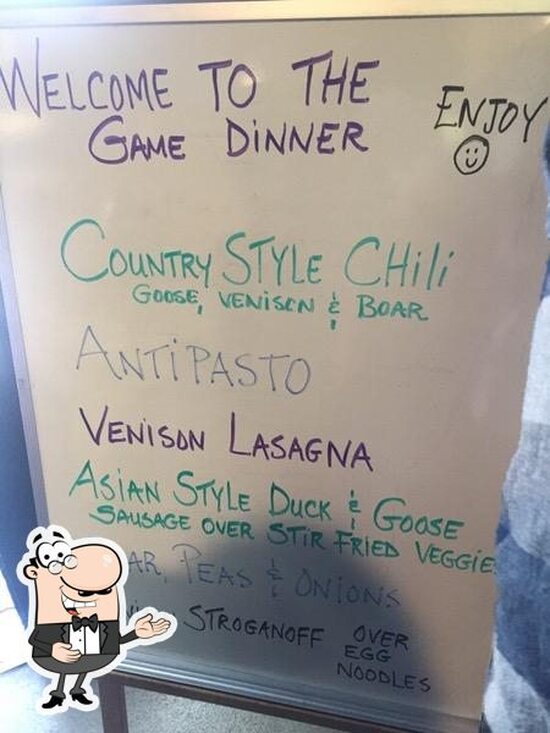 WELCOME TO THE
GAME DINNER
ENJOY
COUNTRY STYLE CHILI
GOOSE, VENISON & BOAR
ANTIPASTO
VENISON LASAGNA
ASIAN STYLE DUCK & GOOSE
SAUSAGE OVER STIR FRIED VEGGIES
PEAS & ONIONS
STROGANOFF OVER
EGG
NOODLES